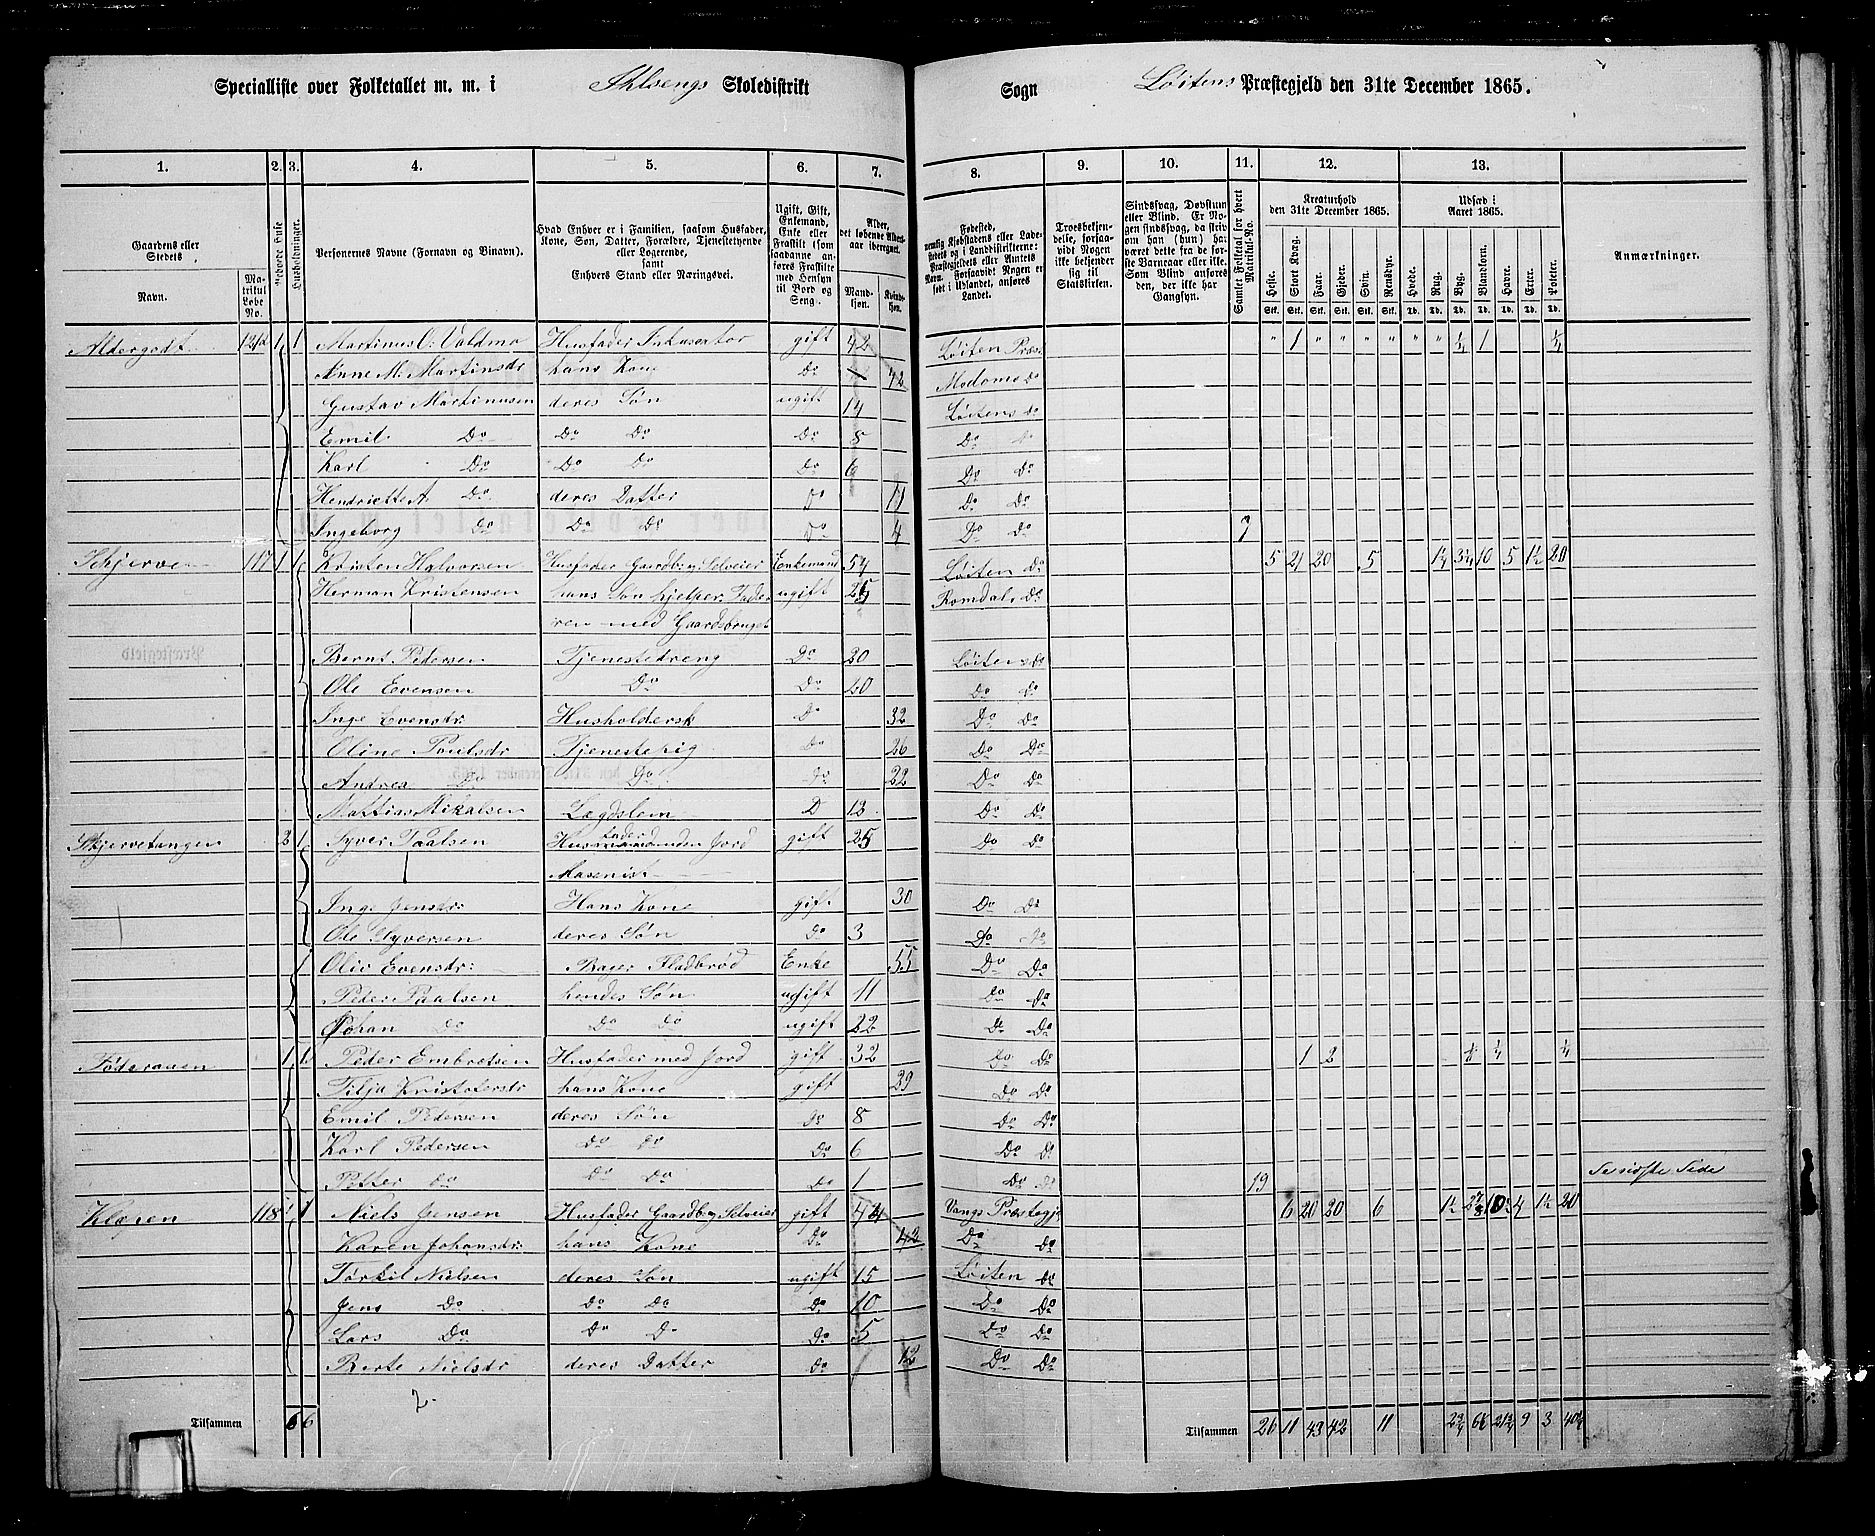 Specialliste over Folketallet m. m. i Skoledistrikt Sogn Løitens Præstegjeld den 31te December 1865.
1. 2. 3. 4. 5. 6. 7. 8. 9. 10. 11. 12. 13.
Gaardens eller Stedets
Navn.
Matrikul Løbe No.
Beboede Huse
Husholdninger.
Personernes Navne (Fornavn og Binavn).
Hvad Enhver er i Familien, saasom Husfader, Kone, Søn, Datter, Forældre, Tjenestetyende eller Logerende,
samt
Enhvers Stand eller Næringsvei.
Ugift, Gift, Enkemand, Enke eller Fraskilt (som saadanne anføres Fraskilte med Hensyn til Bord og Seng.
Alder, det løbende Aldersaar iberegnet.
Mandkjøn. Kvindekjøn.
Fødested, nemlig Kjøbstadens eller Ladestedets og i Landdistrikterne: Præstegjeldets eller Amtets Navn. Forsaavidt Nogen er født i Udlandet, anføres Landet.
Troesbekjendelse, forsaavidt Nogen ikke bekjender sig til Statskirken.
Sindssvag, Døvstum eller Blind. Er Nogen sindssvag, da skrives om han (hun) har været dette fra første Barneaar eller ikke. Som Blind anføres den, der ikke har Gangsyn.
Samlet Folketal for hvert Matrikul-No.
Kreaturhold den 31te December 1865.
Heste. Stort Kvæg. Faar. Gjeder. Svin. Rensdyr.
Udsæd i Aaret 1865.
Hvede. Rug. Byg. Blandkorn. Havre. Erter. Poteter.
Anmærkninger.
Martinus O: Voldmo gift 42 Løiten Præs " 1 " " " " " " 1/4 1 1/4
Anne M: Martinsdr hans Kone Do 42
Gustav Martinusen deres Søn ugift 14 Løitens do
Emil Do Do Do Do 8 Do do
Karl Do Do Do Do 6 Do Do
Hendrikette A Do deres Datter Do 11 Do Do
Ingeborg Do Do Do Do 4 Do Do 7
Skjerve 117 1 1 Kristen Halvorsen Husfader Gaardbr: Selveier Enkemand 54 Løiten Do 5 21 20 5 10 5 1½ 20
Herman Kristensen hans Søn hjelper Fade ugift 25 Romdals Do
ren med Gaardsbruget
Bernt Pedersen Tjenestedreng Do 20 Løitens do
Ole Evensen Do Do 20 Do do
Inge Evensdr Husholdersk Do 32 Do Do
Oline Poulsdr Tjenestepig Do 26 Do Do
Andrea Do Do Do 22 Do Do
Mattias Mikalsen Lægdslem D 12 Do Do
Skjervetangen 2 1 Syver Paalsen gift 25 Do Do
Inge Jensdr: Hans Kone gift 30 Do Do
Ole Syversen deres Søn Do 3 Do Do
1 Oliv Evensdr: Bager Fladbrød Enke 55 Do Do
Peter Paalsen hendes Søn ugift 11 Do Do
Johan Do Do Do ugift 22 Do Do
1 1 Peder Embretsen Husfader med Jord gift 32 Do Do 1 2 1/4 1/4
Kristofersdr hans Kone gift 29 Do Do
Emil Pedersen deres Søn Do 8 Do Do
Karl Pedersen Do Do Do 6 Do Do
Petter Do Do Do Do 1 Do Do 19 Se næste Side
118 1 1 Niels Jensen Husfader Gaardbr: Selveier gift 44 Vangs Præstegj 6 20 20 6 4 1½ 20
Karen Johansdr: hans Kone Do 42 Do Do
Torkil Nielsen deres Søn ugift 15 Løiten do
Jens Do Do Do Do 10 Do Do
Lars Do Do Do Do 5 Do Do
Berte Nielsdr deres Datter Do 12 Do Do
2
Tilsammen 6 6 Tilsammen 26 11 43 42 11 9 3